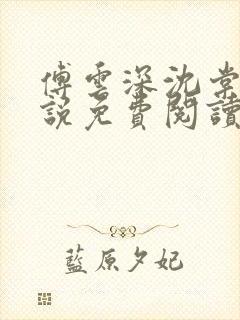 傅雲深沈棠
說免費閱讀
藍原夕妃